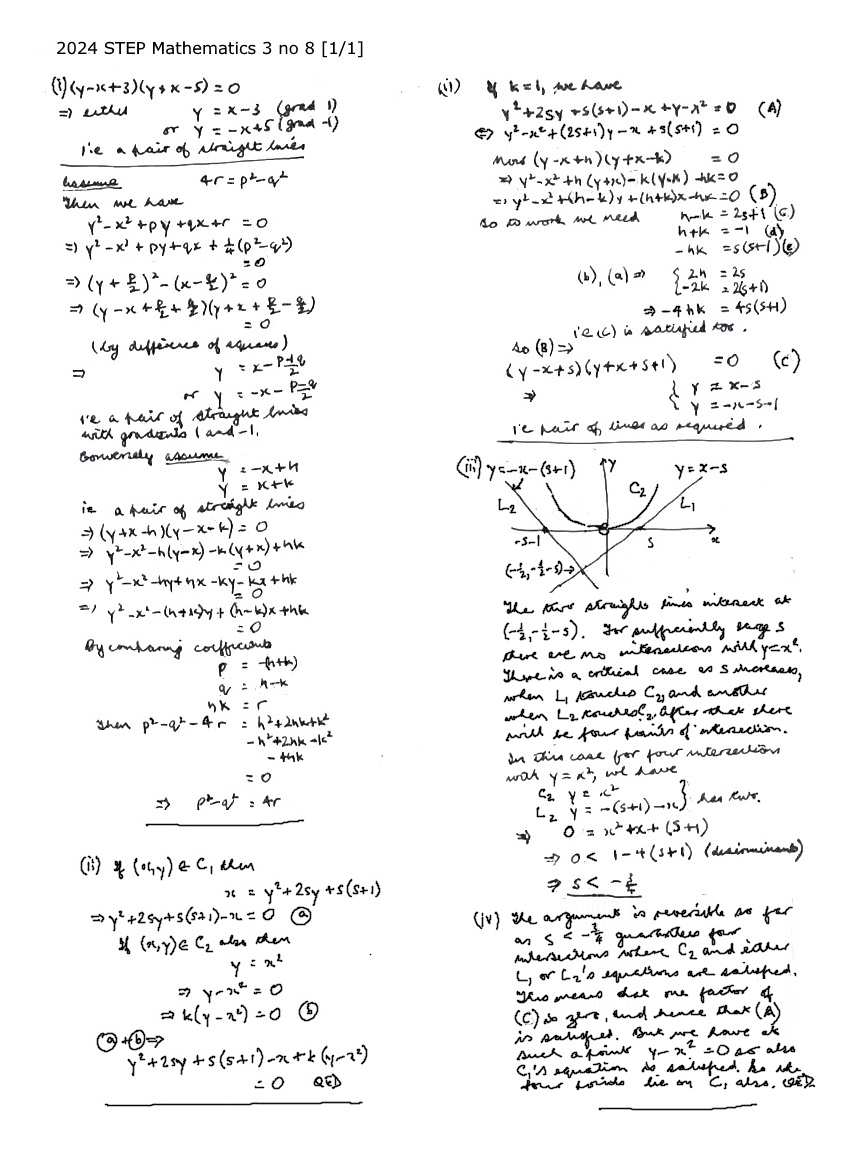 2024 STEP Mathematics 3 no 8 [1/1]
(i) (y-x+3)(y+x-5) = 0
=> either y = x-3 (grad 1)
or y = -x+5 (grad -1)
i.e a pair of straight lines
Assume 4r = p²-q²
Then we have
y²-x²+py+qx+r = 0
=> y²-x²+py+qx+¼(p²-q²)
= 0
=> (y+p/2)²-(x-q/2)² = 0
=> (y-x+p/2+q/2)(y+x+p/2-q/2)
= 0
(by difference of squares)
=> y = x-(p+q)/2
or y = -x-(p-q)/2
i.e a pair of straight lines
with gradients 1 and -1.
Conversely assume
y = -x+h
y = x+k
is a pair of straight lines
=> (y+x-h)(y-x-k) = 0
=> y²-x²-h(y-x)-k(y+x)+hk
= 0
=> y²-x²-hy+hx-ky-kx+hk
= 0
=> y²-x²-(h+k)y+(h-k)x+hk
= 0
By comparing coefficients
p = -(h+k)
q = h-k
hk = r
Then p²-q²-4r = h²+2hk+k²
-h²+2hk-k²
-4hk
= 0
=> p²-q² = 4r
(ii) If (x,y) ∈ C₁ then
x = y²+2sy+s(s+1)
=> y²+2sy+s(s+1)-x = 0 (a)
If (x,y) ∈ C₂ also then
y = x²
=> y-x² = 0
=> k(y-x²) = 0 (b)
(a)+(b) =>
y²+2sy+s(s+1)-x+k(y-x²)
= 0 QED
(ii) If k=1, we have
y²+2sy+s(s+1)-x+y-x² = 0 (A)
<=> y²-x²+(2s+1)y-x+s(s+1) = 0
Now (y-x+h)(y+x-k) = 0
=> y²-x²+h(y+x)-k(y-x)-hk = 0
=> y²-x²+(h-k)y+(h+k)x-hk = 0 (B)
So to work we need h-k = 2s+1 (c)
h+k = -1 (d)
-hk = s(s+1) (e)
(b), (a) => { 2h = 2s
-2k = 2(s+1)
=> -4hk = 4s(s+1)
i.e (c) is satisfied too.
So (B) =>
(y-x+s)(y+x+s+1) = 0 (C)
=> { y = x-s
y = -x-s-1
i.e pair of lines as required.
(iii) y = -x-(s+1) y y = x-s
L₂ C₂ L₁
-s-1 s x
(-½,-½-s)
The two straight lines intersect at
(-½,-½-s). For sufficiently large s
there are no intersections with y=x².
There is a critical case as s increases,
when L₁ touches C₂, and another
when L₂ touches C₂. After that there
will be four points of intersection.
In this case for four intersections
with y = x², we have
C₂ y = x²
L₂ y = -(s+1)-x } has two.
=> 0 = x²+x+(s+1)
=> 0 < 1-4(s+1) (discriminant)
=> s < -¾
(iv) The argument is reversible so far
as s < -¾ guarantees four
intersections where C₂ and either
L₁ or L₂'s equations are satisfied.
This means that one factor of
(C) is zero, and hence that (A)
is satisfied. But we have at
such a point y-x² = 0 so also
C₁'s equation is satisfied. So the
four points lie on C₁ also. QED